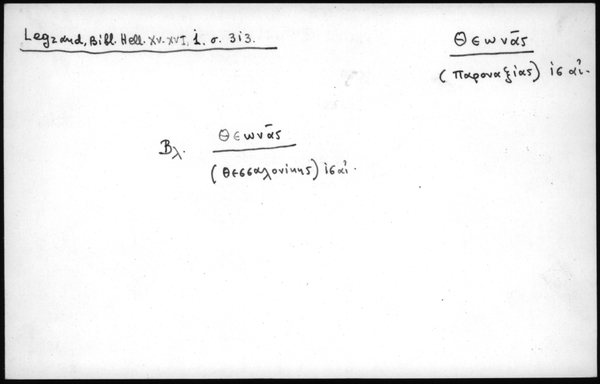 Legrand, Bibl. Hell. XV. XVI, 1. σ. 313.
Θεωνᾶς
(Παροναξίας) ις αἰ.
Βλ. Θεωνᾶς
(Θεσσαλονίκης) ις αἰ.